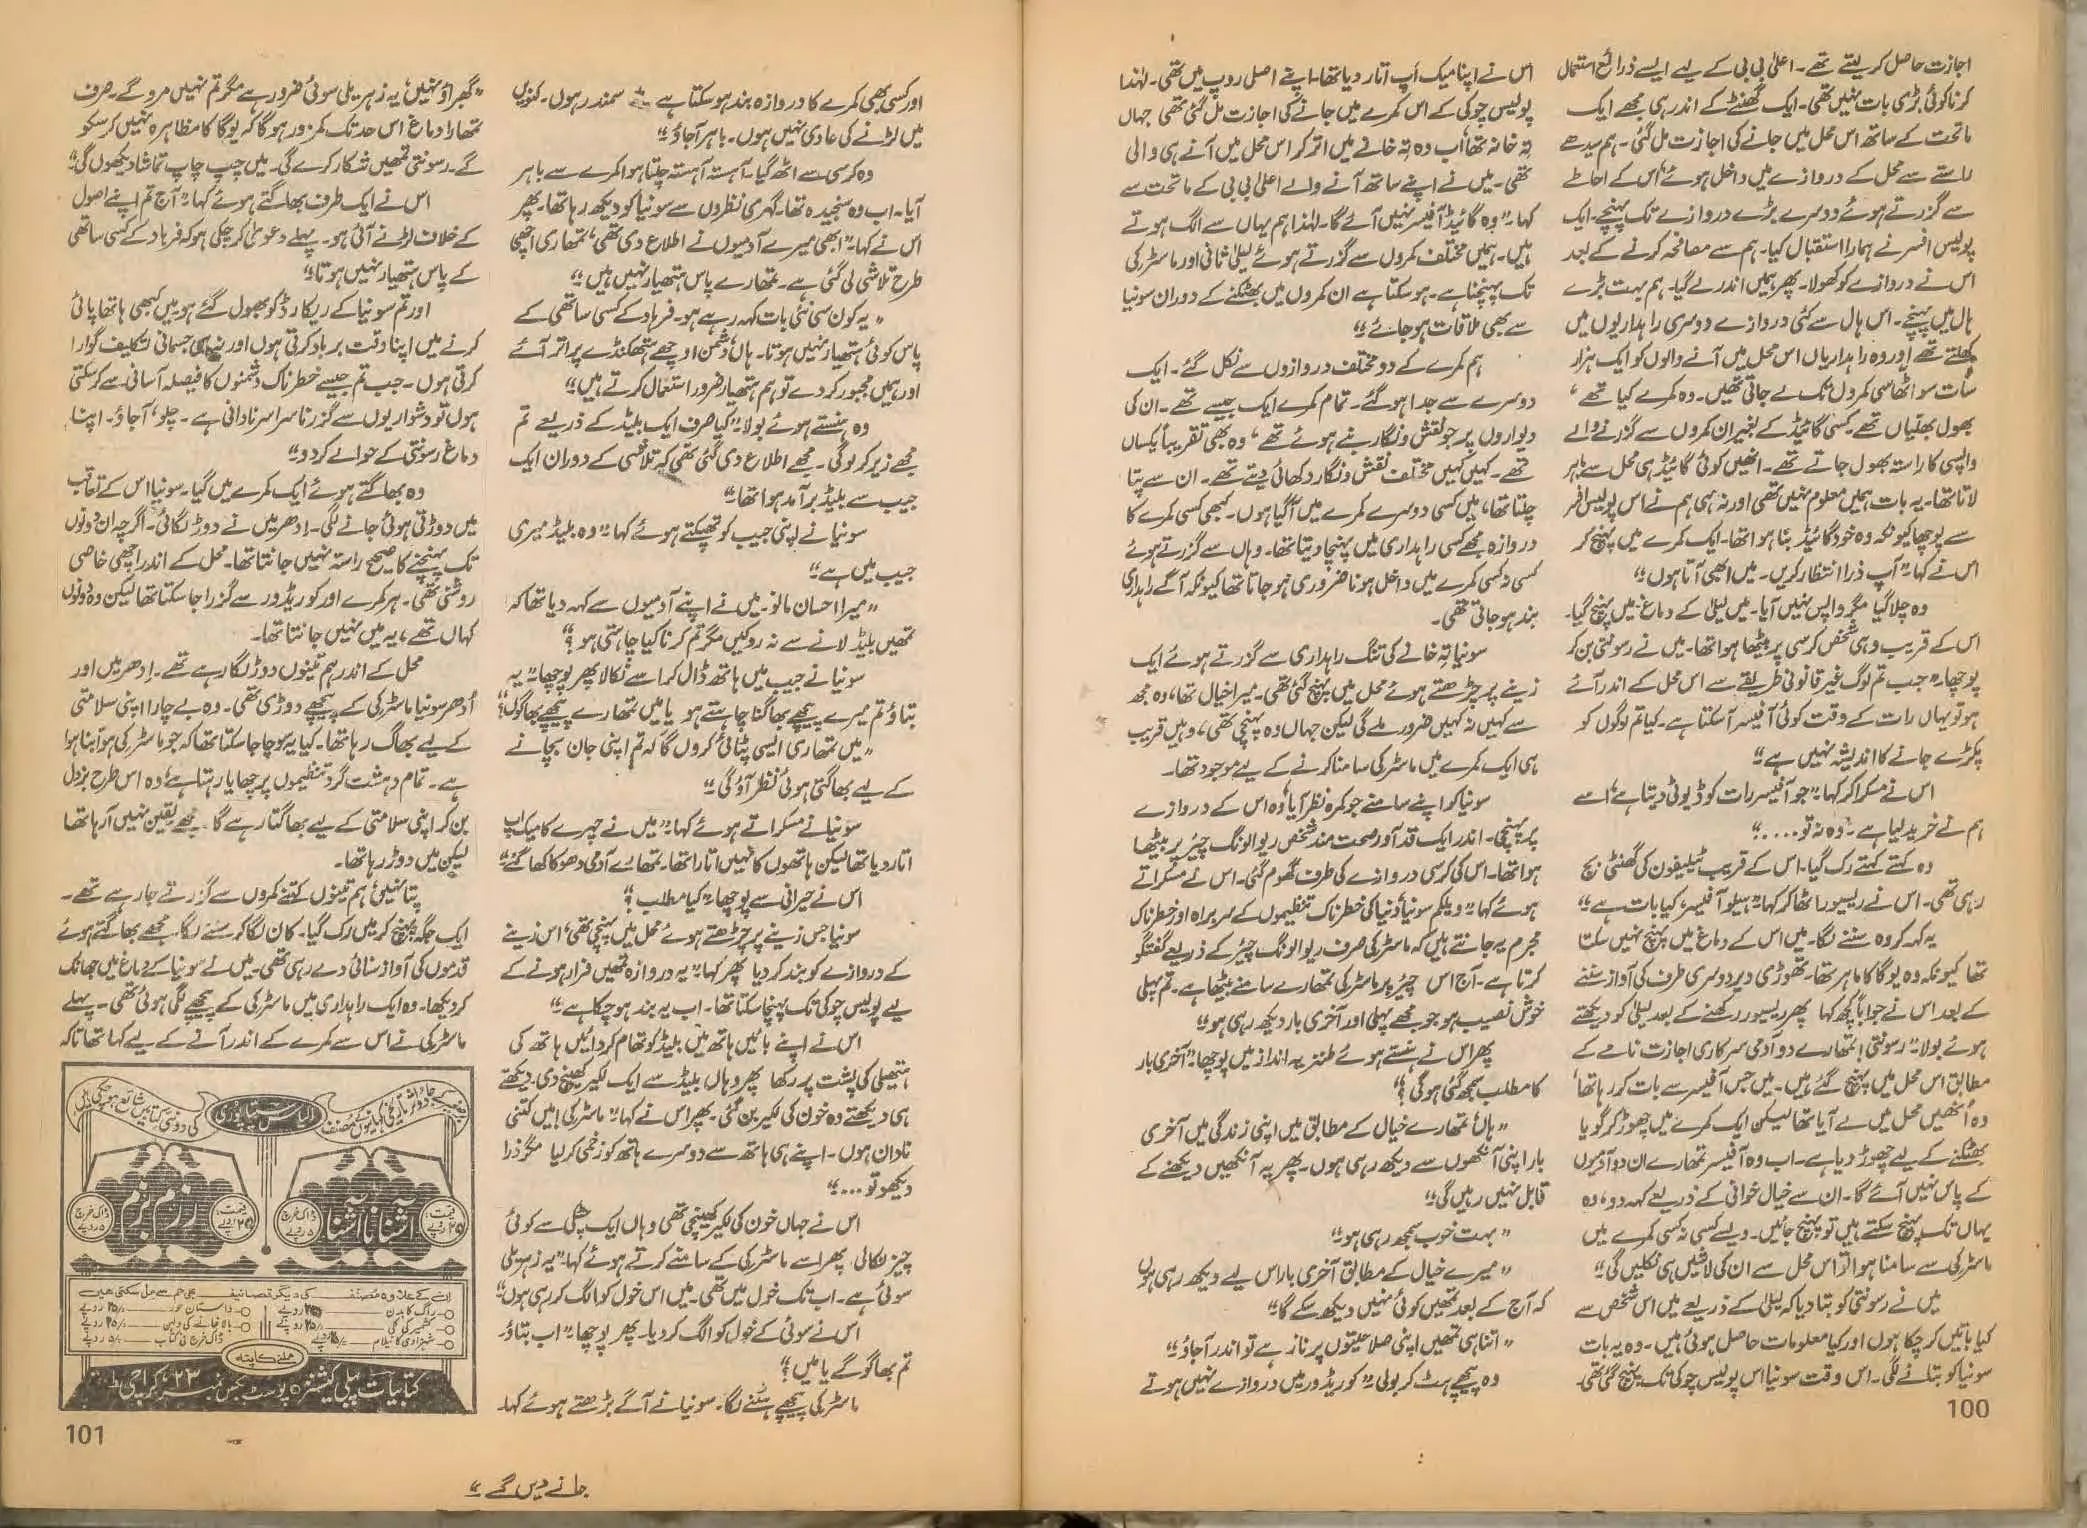 اجازت حاصل کر لیتے تھے۔ اعلیٰ بی بی کے لیے ایسے ذرائع استعمال
کرنا کوئی بڑی بات نہیں تھی۔ ایک گھنٹے کے اندر ہی مجھے ایک
ماتحت کے ساتھ اس محل میں جانے کی اجازت مل گئی۔ ہم سیدھے
راستے سے محل کے دروازے میں داخل ہوئے‘ اس کے احاطے
سے گزرتے ہوئے دوسرے بڑے دروازے تک پہنچے۔ ایک
پولیس افسر نے ہمارا استقبال کیا۔ ہم سے مصافحہ کرنے کے بعد
اس نے دروازے کو کھولا۔ پھر ہمیں اندر لے گیا۔ ہم بہت بڑے
ہال میں پہنچے۔ اس ہال سے کئی دروازے دوسری راہداریوں میں
کھلتے تھے اور وہ راہداریاں اس محل میں آنے والوں کو ایک ہزار
سات سو اٹھاسی کمروں تک لے جاتی تھیں۔ وہ کمرے کیا تھے‘
بھول بھلیاں تھے۔ کسی گائیڈ کے بغیر ان کمروں سے گزرنے والے
واپسی کا راستہ بھول جاتے تھے۔ انھیں کوئی گائیڈ ہی محل سے باہر
لاتا تھا۔ یہ بات ہمیں معلوم نہیں تھی اور نہ ہی ہم نے اس پولیس افسر
سے پوچھا کیونکہ وہ خود گائیڈ بنا ہوا تھا۔ ایک کمرے میں پہنچ کر
اس نے کہا۔ ”آپ ذرا انتظار کریں۔ میں ابھی آتا ہوں“
وہ چلا گیا مگر واپس نہیں آیا۔ میں لیلیٰ کے دماغ میں پہنچ گیا۔
اس کے قریب وہی شخص کرسی پر بیٹھا ہوا تھا۔ میں نے رسونتی بن کر
پوچھا۔ ”جب تم لوگ غیر قانونی طریقے سے اس محل کے اندر آئے
ہو تو یہاں رات کے وقت کوئی آفیسر آ سکتا ہے۔ کیا تم لوگوں کو
پکڑے جانے کا اندیشہ نہیں ہے“
اس نے مسکرا کر کہا۔ ”جو آفیسر رات کو ڈیوٹی دیتا ہے‘ اسے
ہم نے خرید لیا ہے۔ وہ نہ تو....“
وہ کہتے کہتے رک گیا۔ اس کے قریب ٹیلیفون کی گھنٹی بج
رہی تھی۔ اس نے ریسیور اٹھا کر کہا۔ ”ہیلو آفیسر، کیا بات ہے“
یہ کہہ کر وہ سننے لگا۔ میں اس کے دماغ میں پہنچ نہیں سکتا
تھا کیونکہ وہ یوگا کا ماہر تھا۔ تھوڑی دیر دوسری طرف کی آواز سننے
کے بعد اس نے جواباً کچھ کہا پھر ریسیور رکھنے کے بعد لیلیٰ کو دیکھتے
ہوئے بولا۔ ”رسونتی! تمھارے دو آدمی سرکاری اجازت نامے کے
مطابق اس محل میں پہنچ گئے ہیں۔ میں جس آفیسر سے بات کر رہا تھا‘
وہ اُنھیں محل میں لے آیا تھا لیکن ایک کمرے میں چھوڑ کر گویا
بھٹکنے کے لیے چھوڑ دیا ہے۔ اب وہ آفیسر تمھارے ان دو آدمیوں
کے پاس نہیں آئے گا۔ ان سے خیال خوانی کے ذریعے کہہ دو، وہ
یہاں تک پہنچ سکتے ہیں تو پہنچ جائیں۔ ویسے کسی نہ کسی کمرے میں
ماسٹر کی سے سامنا ہوا تو اس محل سے ان کی لاشیں ہی نکلیں گی“
میں نے رسونتی کو بتا دیا کہ لیلیٰ کے ذریعے میں اس شخص سے
کیا باتیں کر چکا ہوں اور کیا معلومات حاصل ہوئی ہیں۔ وہ یہ بات
سونیا کو بتانے لگی۔ اس وقت سونیا اس پولیس چوکی تک پہنچ گئی تھی۔
100
اس نے اپنا میک اَپ اتار دیا تھا۔ اپنے اصلی روپ میں تھی۔ لہٰذا
پولیس چوکی کے اس کمرے میں جانے کی اجازت مل گئی تھی جہاں
تہ خانہ تھا‘ اب وہ تہ خانے میں اتر کر اس محل میں آنے ہی والی
تھی۔ میں نے اپنے ساتھ آنے والے اعلیٰ بی بی کے ماتحت سے
کہا۔ ”وہ گائیڈ آفیسر نہیں آئے گا۔ لہٰذا ہم یہاں سے الگ ہوتے
ہیں۔ ہمیں مختلف کمروں سے گزرتے ہوئے لیلیٰ ثانی اور ماسٹر کی
تک پہنچنا ہے۔ ہو سکتا ہے ان کمروں میں بھٹکنے کے دوران سونیا
سے بھی ملاقات ہو جائے“
ہم کمرے کے دو مختلف دروازوں سے نکل گئے۔ ایک
دوسرے سے جدا ہو گئے۔ تمام کمرے ایک جیسے تھے۔ ان کی
دیواروں پر جو نقش و نگار بنے ہوئے تھے‘ وہ بھی تقریباً یکساں
تھے۔ کہیں کہیں مختلف نقش و نگار دکھائی دیتے تھے۔ ان سے پتا
چلتا تھا، میں کسی دوسرے کمرے میں آ گیا ہوں۔ کبھی کسی کمرے کا
دروازہ مجھے کسی راہداری میں پہنچا دیتا تھا۔ وہاں سے گزرتے ہوئے
کسی نہ کسی کمرے میں داخل ہونا ضروری ہو جاتا تھا کیونکہ آگے راہداری
بند ہو جاتی تھی۔
سونیا تہ خانے کی تنگ راہداری سے گزرتے ہوئے ایک
زینے پر چڑھتے ہوئے محل میں پہنچ گئی تھی۔ میرا خیال تھا، وہ مجھ
سے کہیں نہ کہیں ضرور ملے گی لیکن جہاں وہ پہنچی تھی، وہیں قریب
ہی ایک کمرے میں ماسٹر کی سامنا کرنے کے لیے موجود تھا۔
سونیا کو اپنے سامنے جو کمرہ نظر آیا‘ وہ اس کے دروازے
پر پہنچی۔ اندر ایک قد آور صحت مند شخص ریوالونگ چیئر پر بیٹھا
ہوا تھا۔ اس کی کرسی دروازے کی طرف گھوم گئی۔ اس نے مسکراتے
ہوئے کہا۔ ”ویلکم سونیا‘ دنیا کی خطرناک تنظیموں کے سربراہ اور خطرناک
مجرم یہ جانتے ہیں کہ ماسٹر کی صرف ریوالونگ چیئر کے ذریعے گفتگو
کرتا ہے۔ آج اس چیئر پر ماسٹر کی تمھارے سامنے بیٹھا ہے۔ تم پہلی
خوش نصیب ہو جو مجھے پہلی اور آخری بار دیکھ رہی ہو“
پھر اس نے ہنستے ہوئے طنزیہ انداز میں پوچھا۔ ”آخری بار
کا مطلب سمجھ گئی ہو گی؟“
”ہاں‘ تمھارے خیال کے مطابق میں اپنی زندگی میں آخری
بار اپنی آنکھوں سے دیکھ رہی ہوں۔ پھر یہ آنکھیں دیکھنے کے
قابل نہیں رہیں گی“
”بہت خوب سمجھ رہی ہو“
”میرے خیال کے مطابق آخری بار اس لیے دیکھ رہی ہوں
کہ آج کے بعد تمھیں کوئی نہیں دیکھ سکے گا“
”اتنا ہی تمھیں اپنی صلاحیتوں پر ناز ہے تو اندر آ جاؤ“
وہ پیچھے ہٹ کر بولی۔ ”کوریڈور میں دروازے نہیں ہوتے
اور کسی بھی کمرے کا دروازہ بند ہو سکتا ہے سمندر ہوں۔ کنویں
میں لڑنے کی عادی نہیں ہوں۔ باہر آ جاؤ“
وہ کرسی سے اٹھ گیا۔ آہستہ آہستہ چلتا ہوا کمرے سے باہر
آیا۔ اب وہ سنجیدہ تھا۔ گہری نظروں سے سونیا کو دیکھ رہا تھا۔ پھر
اس نے کہا۔ ”ابھی میرے آدمیوں نے اطلاع دی تھی‘ تمھاری اچھی
طرح تلاشی لی گئی ہے۔ تمھارے پاس ہتھیار نہیں ہیں“
”یہ کون سی نئی بات کہہ رہے ہو۔ فرہاد کے کسی ساتھی کے
پاس کوئی ہتھیار نہیں ہوتا۔ ہاں‘ دشمن اوچھے ہتھکنڈے پر اتر آئے
اور ہمیں مجبور کر دے تو ہم ہتھیار ضرور استعمال کرتے ہیں“
وہ ہنستے ہوئے بولا۔ ”کیا صرف ایک بلیڈ کے ذریعے تم
مجھے زیر کر لو گی۔ مجھے اطلاع دی گئی تھی کہ تلاشی کے دوران ایک
جیب سے بلیڈ برآمد ہوا تھا“
سونیا نے اپنی جیب کو تھپکتے ہوئے کہا۔ ”وہ بلیڈ میری
جیب میں ہے“
”میرا احسان مانو۔ میں نے اپنے آدمیوں سے کہہ دیا تھا کہ
تمھیں بلیڈ لانے سے نہ روکیں مگر تم کرنا کیا چاہتی ہو؟“
سونیا نے جیب میں ہاتھ ڈال کر اسے نکالا پھر پوچھا۔ ”یہ
بتاؤ تم میرے پیچھے بھاگنا چاہتے ہو یا میں تمھارے پیچھے بھاگوں؟“
”میں تمھاری ایسی پٹائی کروں گا کہ تم اپنی جان بچانے
کے لیے بھاگتی ہوئی نظر آؤ گی“
سونیا نے مسکراتے ہوئے کہا۔ ”میں نے چہرے کا میک اپ
اتار دیا تھا لیکن ہاتھوں کا نہیں اتارا تھا۔ تمھارے آدمی دھوکا کھا گئے“
اس نے حیرانی سے پوچھا۔ ”کیا مطلب؟“
سونیا جس زینے پر چڑھتے ہوئے محل میں پہنچی تھی‘ اس زینے
کے دروازے کو بند کر دیا پھر کہا۔ ”یہ دروازہ تمھیں فرار ہونے کے
لیے پولیس چوکی تک پہنچا سکتا تھا۔ اب یہ بند ہو چکا ہے“
اس نے اپنے بائیں ہاتھ میں بلیڈ کو تھام کر دائیں ہاتھ کی
ہتھیلی کی پشت پر رکھا پھر وہاں بلیڈ سے ایک لکیر کھینچ دی۔ دیکھتے
ہی دیکھتے وہ خون کی لکیر بن گئی۔ پھر اس نے کہا۔ ”ماسٹر کی! میں کتنی
نادان ہوں۔ اپنے ہی ہاتھ سے دوسرے ہاتھ کو زخمی کر لیا مگر ذرا
دیکھو تو....“
اس نے جہاں خون کی لکیر کھینچی تھی وہاں ایک چٹکی سے کوئی
چیز نکالی پھر اسے ماسٹر کی کے سامنے کرتے ہوئے کہا۔ ”یہ زہریلی
سوئی ہے۔ اب تک خول میں تھی۔ میں اس خول کو الگ کر رہی ہوں“
اس نے سوئی کے خول کو الگ کر دیا۔ پھر پوچھا۔ ”اب بتاؤ۔
تم بھاگو گے یا میں؟“
ماسٹر کی پیچھے ہٹنے لگا۔ سونیا نے آگے بڑھتے ہوئے کہا۔
”گھبراؤ نہیں، یہ زہریلی سوئی ضرور ہے مگر تم نہیں مرو گے۔ صرف
تمھارا دماغ اس حد تک کمزور ہو گا کہ یوگا کا مظاہرہ نہیں کر سکو
گے۔ رسونتی تمھیں شکار کرے گی۔ میں چپ چاپ تماشا دیکھوں گی“
اس نے ایک طرف بھاگتے ہوئے کہا۔ ”آج تم اپنے اصول
کے خلاف لڑنے آئی ہو۔ پہلے دعویٰ کر چکی ہو کہ فرہاد کے کسی ساتھی
کے پاس ہتھیار نہیں ہوتا“
اور تم سونیا کے ریکارڈ کو بھول گئے ہو میں کبھی ہاتھا پائی
کرنے میں اپنا وقت برباد کرتی ہوں اور نہ ہی جسمانی تکالیف گوارا
کرتی ہوں۔ جب تم جیسے خطرناک دشمنوں کا فیصلہ آسانی سے کر سکتی
ہوں تو دشواریوں سے گزرنا سراسر نادانی ہے۔ چلو‘ آ جاؤ۔ اپنا
دماغ رسونتی کے حوالے کر دو“
وہ بھاگتے ہوئے ایک کمرے میں گیا۔ سونیا اس کے تعاقب
میں دوڑتی ہوئی جانے لگی۔ اِدھر میں نے دوڑ لگائی۔ اگرچہ ان دونوں
تک پہنچنے کا صحیح راستہ نہیں جانتا تھا۔ محل کے اندر اچھی خاصی
روشنی تھی۔ ہر کمرے اور کوریڈور سے گزرا جا سکتا تھا لیکن وہ دونوں
کہاں تھے، یہ میں نہیں جانتا تھا۔
محل کے اندر ہم تینوں دوڑ لگا رہے تھے۔ اِدھر میں اور
اُدھر سونیا ماسٹر کی کے پیچھے دوڑ رہی تھی۔ وہ بے چارا اپنی سلامتی
کے لیے بھاگ رہا تھا۔ کیا یہ سوچا جا سکتا تھا کہ جو ماسٹر کی ہوّا بنا ہوا
ہے۔ تمام دہشت گرد تنظیموں پر چھایا رہتا ہے‘ وہ اس طرح بزدل
بن کر اپنی سلامتی کے لیے بھاگتا رہے گا۔ مجھے یقین نہیں آ رہا تھا
لیکن میں دوڑ رہا تھا۔
پتا نہیں‘ ہم تینوں کتنے کمروں سے گزرتے جا رہے تھے۔
ایک جگہ پہنچ کر میں رک گیا۔ کان لگا کر سننے لگا۔ مجھے بھاگتے ہوئے
قدموں کی آواز سنائی دے رہی تھی۔ میں نے سونیا کے دماغ میں جھانک
کر دیکھا۔ وہ ایک راہداری میں ماسٹر کی کے پیچھے لگی ہوئی تھی۔ پہلے
ماسٹر کی نے اس سے کمرے کے اندر آنے کے لیے کہا تھا تاکہ
الیاس سیتاپوری
کی دو نئی کتابیں شائع ہو چکی ہیں
آشنا نا آشنا
قیمت ۲۵ روپے
ڈاک خرچ ۵ روپے
رزم بزم
قیمت ۲۵ روپے
ڈاک خرچ ۵ روپے
ان کے علاوہ مصنف کی دیگر تصانیف بھی ہم سے مل سکتی ہیں
راگ کا بدن
داستان حور
بالا خانے کی دلہن
ڈاک خرچ فی کتاب -/۵ روپے
ملنے کا پتہ
کتابیات پبلی کیشنز ○ پوسٹ بکس نمبر ۲۳، کراچی ۱
101
جانے دیں گے“